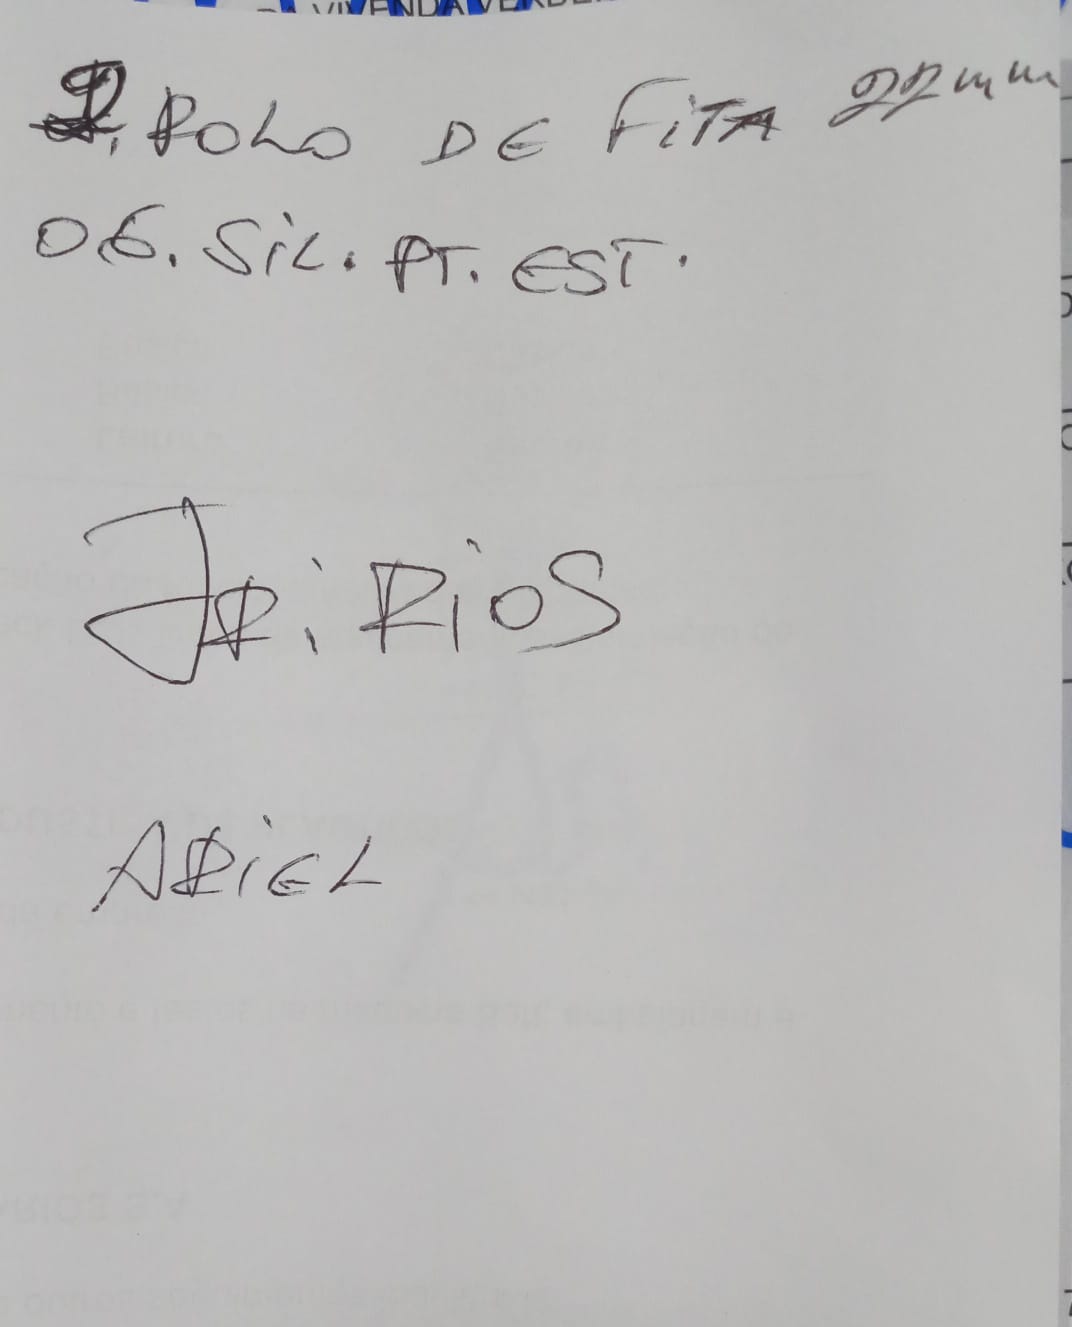 VIVENDA VERDE
2. ROLO DE FiTA 22mm
06. SiL. PT. EST.
JR. RiOS
ARiEL